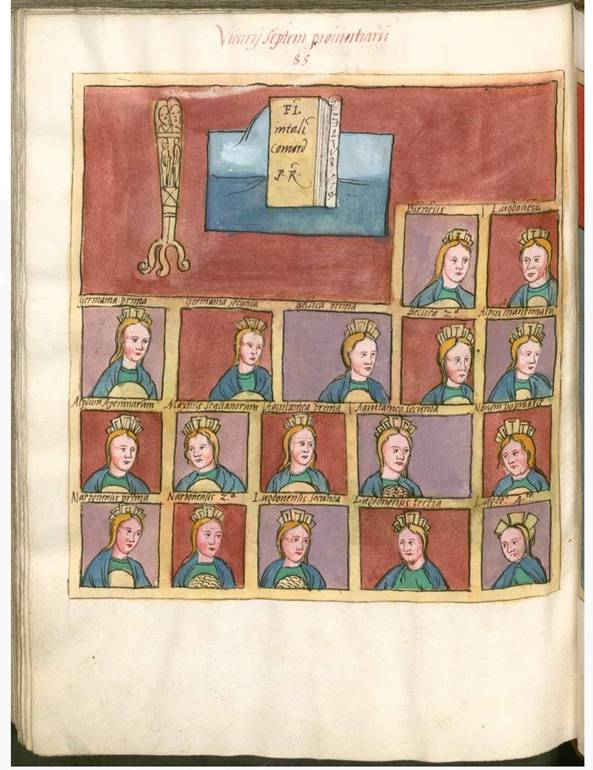 Vicarij septem provintiarū
85
FL
intali
Comord
P. R.
Bienēsis Lugdonēsis
Germania prima Germania secunda Belgica prima Belgica 2ª Alpiū maritimarū
Alpium Apenninarum Maxima Sequanorum Aquitanica prima Aquitanica secunda
Narbonensis prima Narbonensis 2ª Lugdonensis secunda Lugdonensis tertia